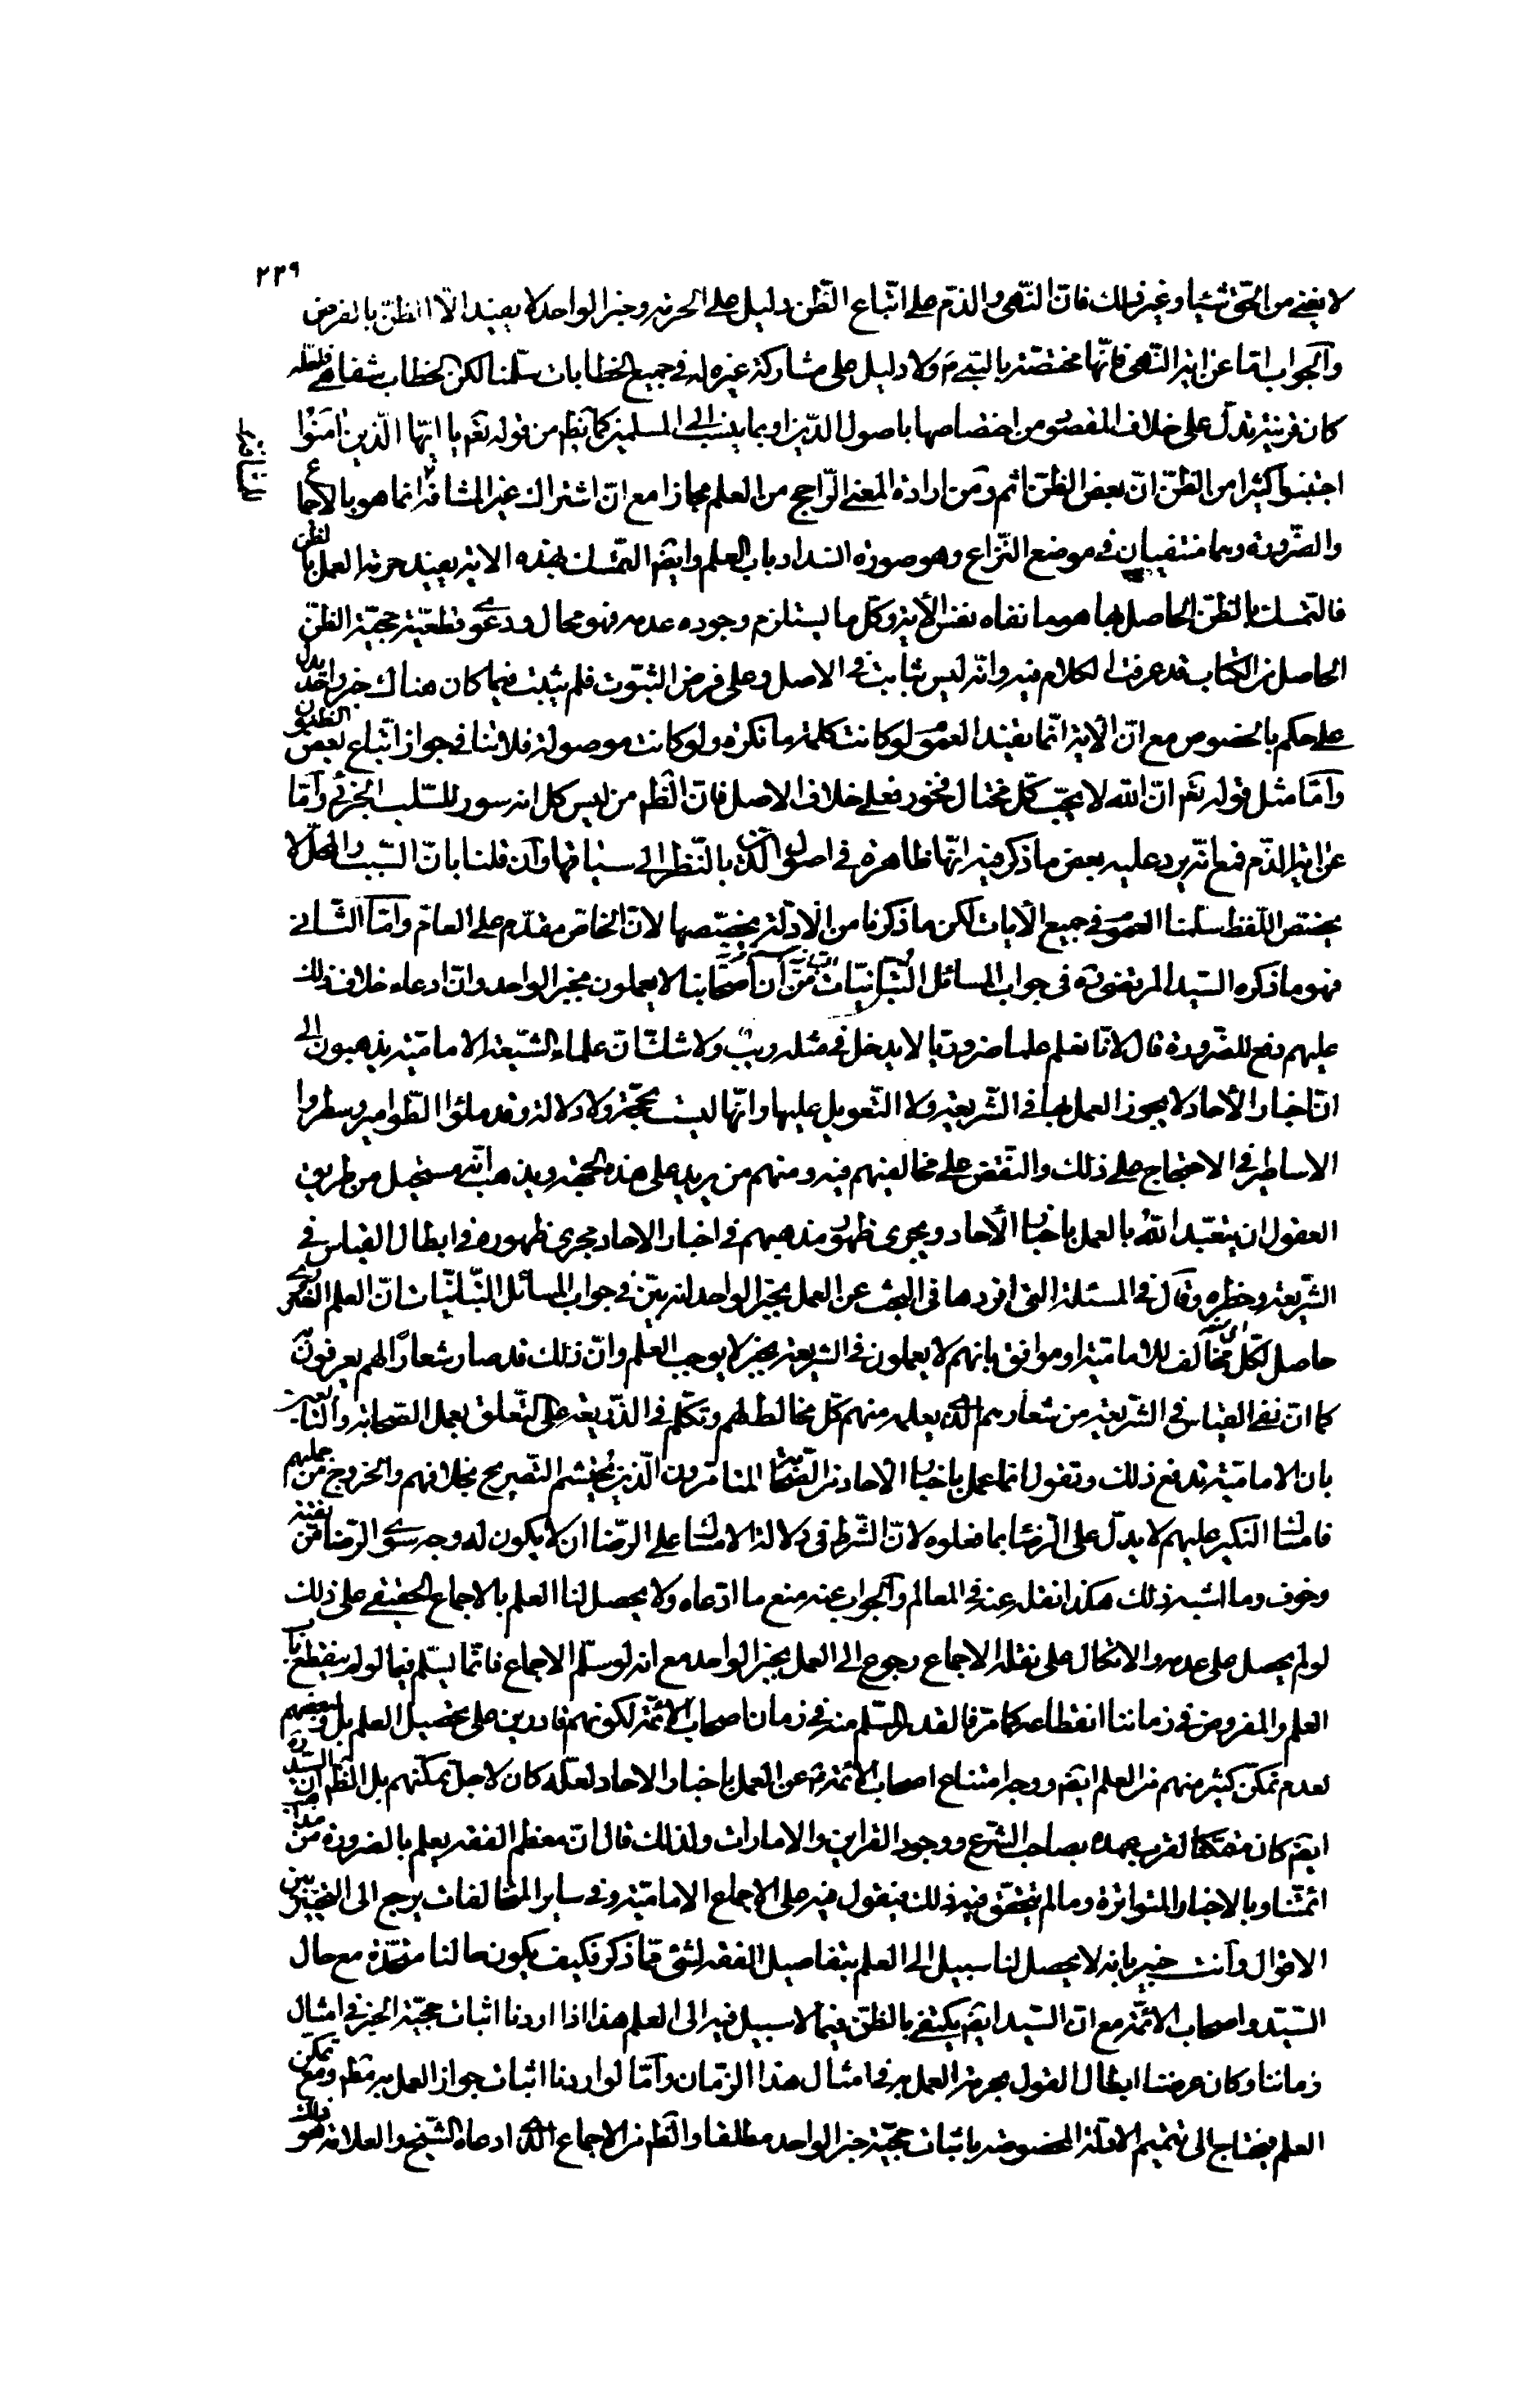 ٢٣٩
لا يغنى من الحقّ شيئا وغير ذلك فانّ النّهى والذمّ على اتّباع الظّن دليل على الحرمة وخبر الواحد لا يفيد الّا الظنّ بالفرض
والجواب امّا عن اية النّهى فانّها مختصّة بالنّبىّ ص ولا دليل على مشاركة غيره له فى جميع الخطابات سلّمنا لكن الخطاب شفاهى فلعلّه
كان قرينة تدلّ على خلاف المقصود من اختصاصها باصول الدّين او بما ينسب الى المسلمين كما يظهر من قوله تعم يا ايّها الّذين اٰمَنُوا
اجتنبوا كثيرا من الظنّ انّ بعض الظنّ اثم ومن ارادة المعنى الرّاجح من العلم مجازا مع انّ اشتراك غير المشافه انما هو بالاجماع
والضّرورة وهما منتفيان فى موضع النّزاع وهو صورة انسداد باب العلم وايضم التمّسك بهذه الاية يفيد حرمة العمل بالظن
فالتّمسك بالظنّ الحاصل بها هو مما نفاه نفس الأية وكلّ ما يستلزم وجوده عدمه فهو محال ودعوى قطعيّة حجيّة الظنّ
الحاصل من الكتاب قد عرفت الكلام فيه وانّه ليس بثابت فى الاصل وعلى فرض الثبوت فلم يثبت فيما كان هناك خبر واحد يدل
على حكم بالخصوص مع انّ الأية انّما يفيد العموم لو كانت كلمة ما نكرة ولو كانت موصولة فلا ثنا فى جواز اتّباع بعض الظنون
وامّا مثل قوله تعم انّ الله لا يحبّ كلّ مختال فخور فعلى خلاف الاصل فانّ الظم من ليس كل انه سور للسّلب الجزئى وامّا
عن اية الذّم فمع انّه يرد عليه بعض ما ذكر فيه انّها ظاهرة فى اصول الدّين بالنّظر الى سياقها وان قلنا بانّ السّبب والمحلّ لا
يخصّص اللّفظ سلّمنا العموم فى جميع الأيات لكن ما ذكرنا من الادلّة يخصّصها لانّ الخاصّ مقدّم على العامّ وامّا الثّانى
فهو ما ذكره السّيد المرتضى ره فى جواب المسائل التّبّانيّات من انّ اصحابنا لا يعملون بخبر الواحد وانّ ادعاء خلاف ذلك
عليهم دفع للضّرورة قال لانّا نعلم علما ضروريّا لا يدخل فى مثله ريب ولا شك انّ علماء الشّيعة الاماميّة يذهبون الى
انّ اخبار الأحاد لا يجوز العمل بها فى الشّريعة ولا التّعويل عليها وانّها ليست بحجّة ولا دلالة وقد ملئوا الطّوامير وسطروا
الاساطير فى الاحتجاج على ذلك والنّقض على مخالفيهم فيه ومنهم من يزيد على هذه الجملة ويذهب الى انّه مستحيل من طريق
العقول ان يتعبّد الله بالعمل باخبار الأحاد ويجرى ظهور مذهبهم فى اخبار الاحاد مجرى ظهوره فى ابطال القياس فى
الشّريعة وحظره وقال فى المسئلة التى افردها فى البحث عن العمل بخبر الواحد انه بيّن فى جواب المسائل التّبّانيّات انّ العلم الضّرورى
حاصل لكلّ مخالف للاماميّة او موافق بانهم لا يعملون فى الشريعة بخبر لا يوجب العلم وانّ ذلك قد صار شعارًا لهم يعرفون به
كما انّ نفى القياس فى الشّريعة من شعارهم الّذى يعلمه منهم كلّ مخالط لهم وتكلّم فى الذّريعة على التّعلق بعمل الصّحابة والتّابعين
بان الاماميّة تدفع ذلك وتقول انما عمل باخبار الأحاد من الصّحابة المتامّرون الّذين يُحتشم التّصريح بخلافهم والخروج من جملتهم
فامساك النّكير عليهم لا يدلّ على الرّضا بما فعلوه لانّ الشّرط فى دلالة الامساك على الرّضا ان لا يكون له وجه سوى الرّضا من تقيّة
وخوف وما اشبه ذلك هكذا نقل عنه فى المعالم والجواب عنه منع ما ادّعاه ولا يحصل لنا العلم بالاجماع الحقيقى على ذلك
لو لم يحصل على عدمه والاتكال على نقله الاجماع رجوع الى العمل بخبر الواحد مع انه لو سلّم الاجماع فانّما يسلّم فيما لو لم ينقطع باب
العلم والمفروض فى زماننا انقطاعه كما مرّ فالقدر المسلّم منه فى زمان اصحاب الائمّة لكونهم قادرين على تحصيل العلم بل وبعضهم
لعدم تمكّن كثير منهم من العلم ايضم ووجه امتناع اصحاب الائمّة ع عن العمل باخبار الاحاد لعلّه كان لاجل تمكّنهم بل الظم ان السيّد ره
ايضم كان متمكّنا لقرب عهده بصاحب الشّرع ووجود القراين والامارات ولذلك قال انّ معظم الفقه يعلم بالضرورة من مذاهب
ائمّتنا وبالاخبار المتواترة وما لم يتحقّق فيه ذلك فيقول فيه على الاجماع الاماميّة وفى ساير المخالفات يرجع الى التخيير بين
الاقوال وانت خبير بانه لا يحصل لنا سبيل الى العلم بتفاصيل الفقه لشئ ممّا ذكر فكيف يكون حالنا متّحدة مع حال
السّيّد واصحاب الائمّة مع انّ السّيد ايضم يكتفى بالظنّ فيما لا سبيل فيه الى العلم هذا اذا اردنا اثبات حجيّة الخبر فى امثال
زماننا وكان غرضنا ابطال القول بحرمة العمل به فى امثال هذا الزّمان وامّا لو اردنا اثبات جواز العمل به مطم ومع تمكّن
العلم فيحتاج الى تتميم الادلّة المخصوصة باثبات حجيّة خبر الواحد مطلقا والظم من الاجماع الّذى ادعاه الشّيخ والعلامة هو ذلك